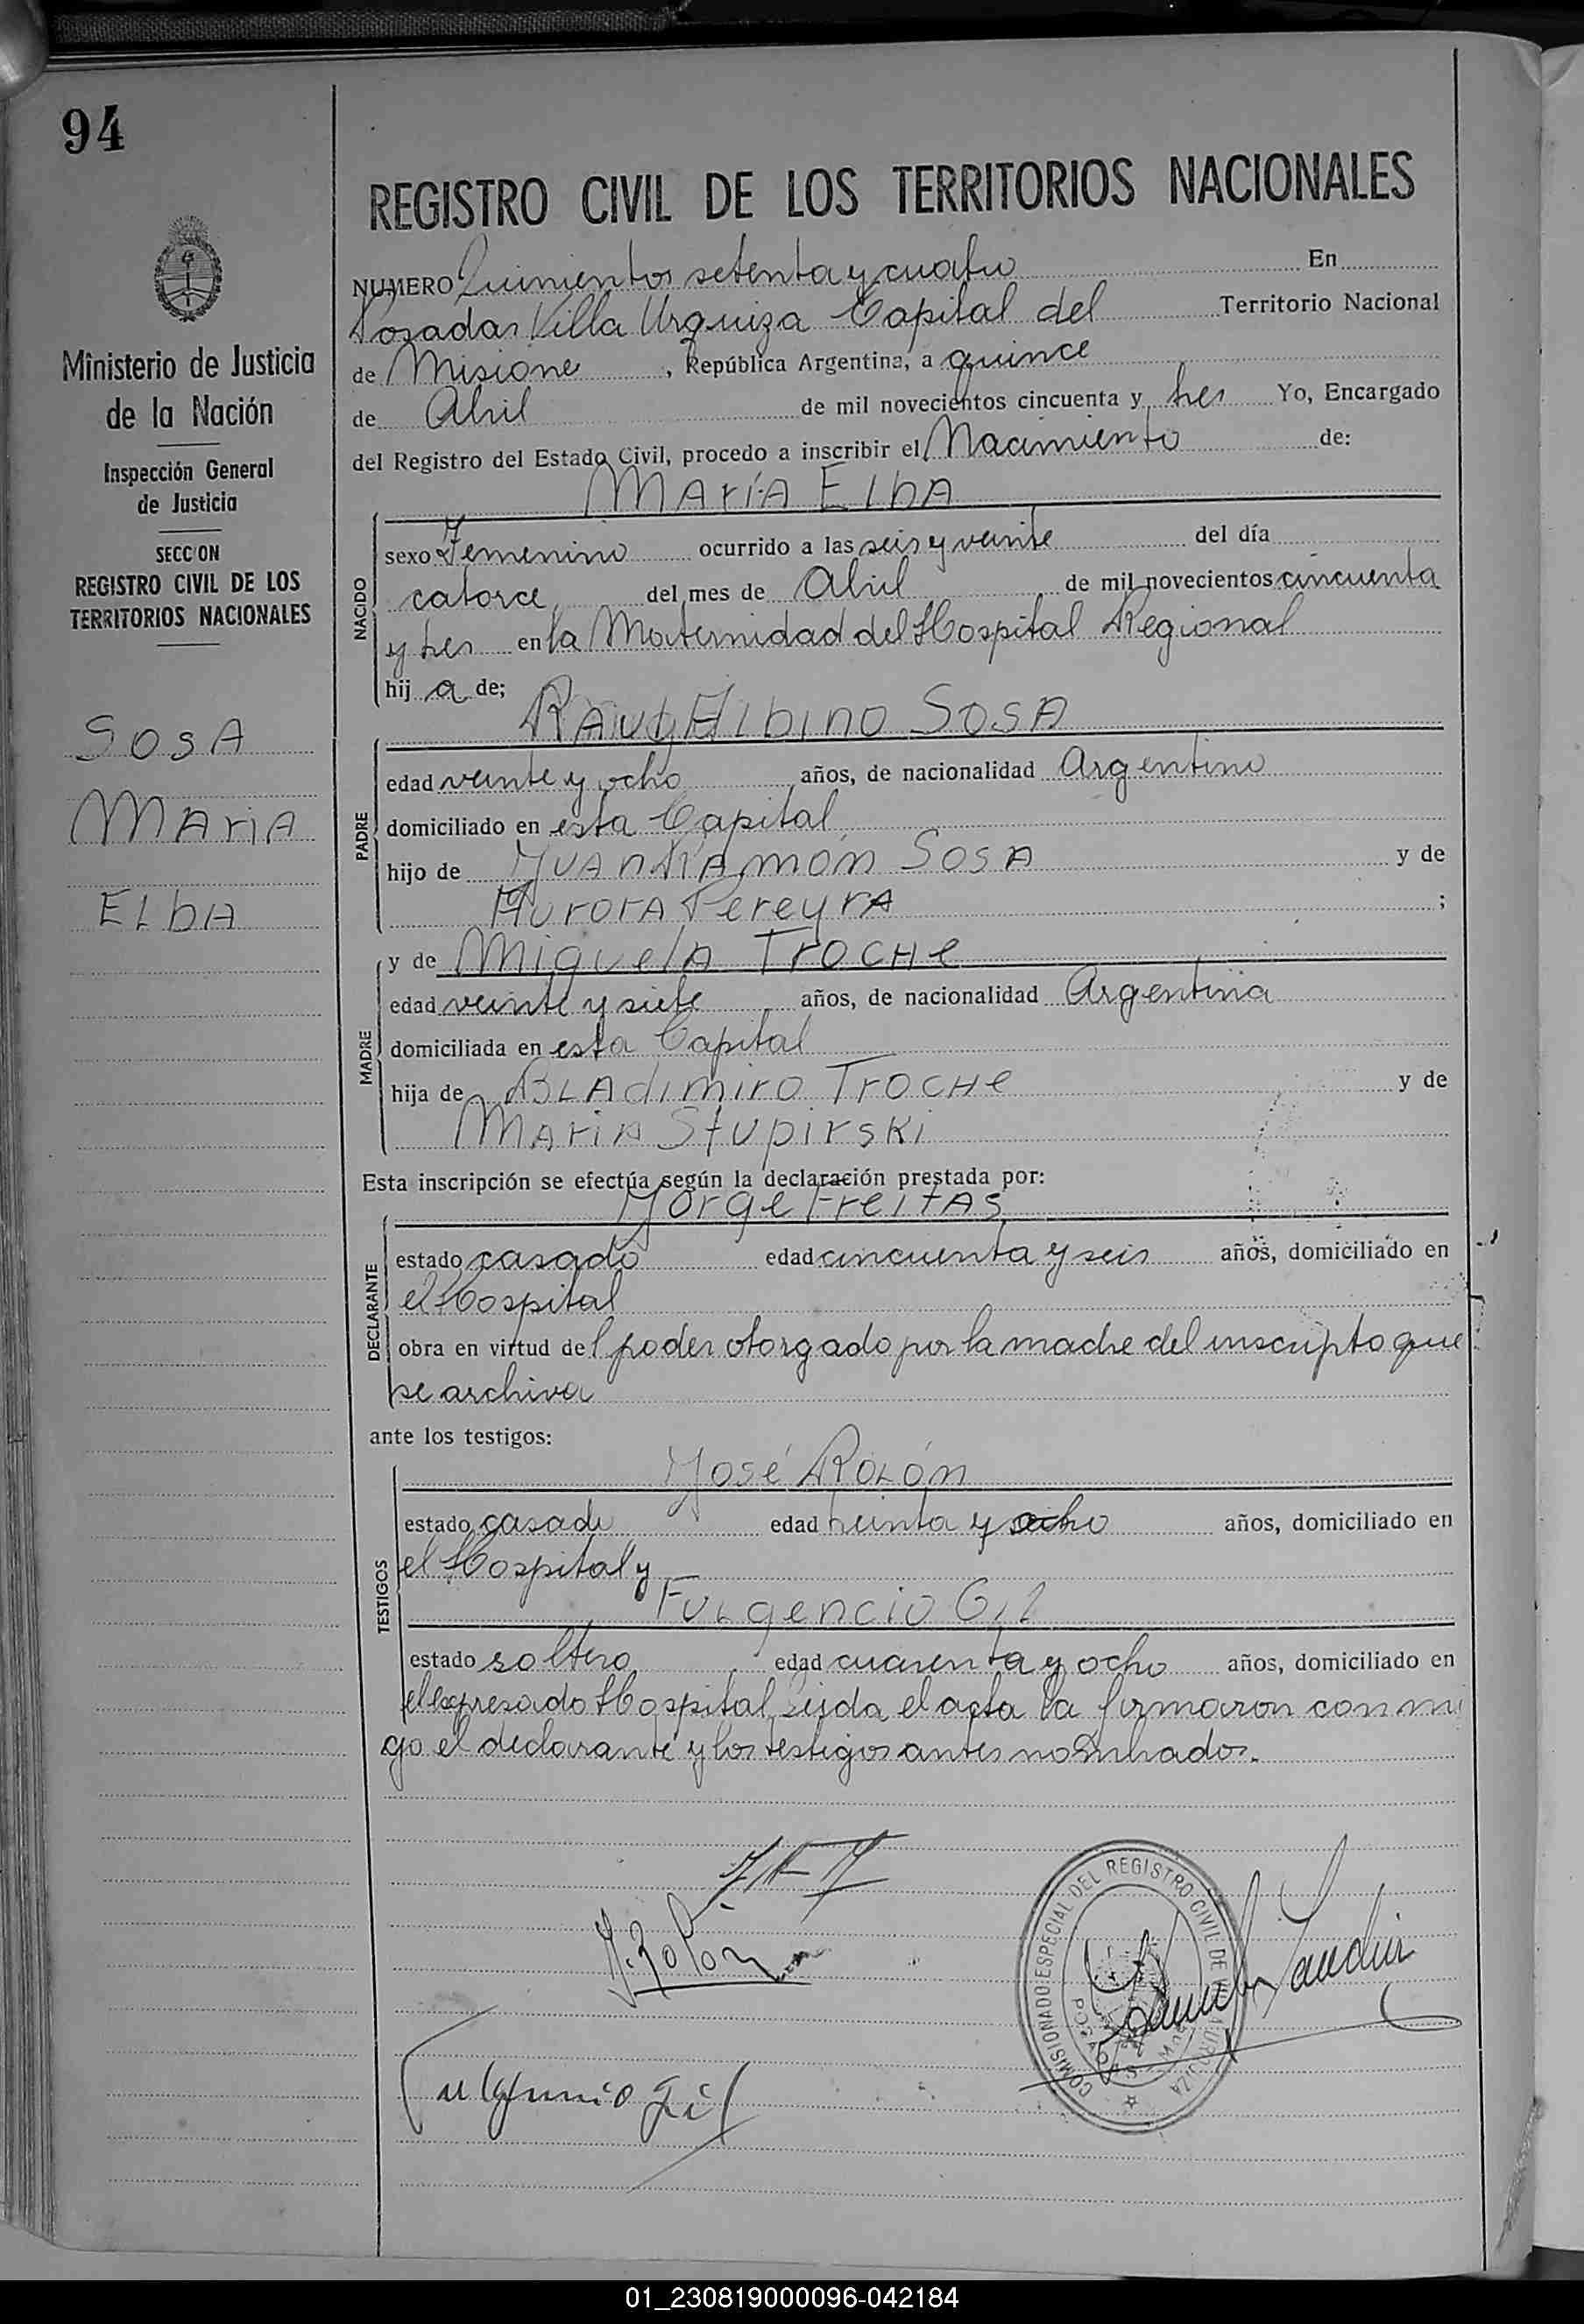 94
Ministerio de Justicia
de la Nación
Inspección General
de Justicia
SECCION
REGISTRO CIVIL DE LOS
TERRITORIOS NACIONALES
SOSA
MARIA
ELbA
REGISTRO CIVIL DE LOS TERRITORIOS NACIONALES
NUMERO Quinientos setenta y cuatro En
Posadas Villa Urquiza Capital del Territorio Nacional
de Misiones, República Argentina, a quince
de Abril de mil novecientos cincuenta y tres Yo, Encargado
del Registro del Estado Civil, procedo a inscribir el Nacimiento de:
MAríA ElbA
NACIDO
sexo Femenino ocurrido a las seis y veinte del día
catorce del mes de Abril de mil novecientos cincuenta
y tres en la Maternidad del Hospital Regional
hij a de;
RAUl AlbinO SOSA
PADRE
edad veinte y ocho años, de nacionalidad Argentino
domiciliado en esta Capital
hijo de JUAn RAmón SOSA y de
AurorA PereyrA ;
y de MiguelA TrOCHe
MADRE
edad veinte y siete años, de nacionalidad Argentina
domiciliada en esta Capital
hija de BLAdimirO TrOCHe y de
MAriA StupirsKi
Esta inscripción se efectúa según la declaración prestada por:
JOrge FreitAS
DECLARANTE
estado casado edad cincuenta y seis años, domiciliado en
el Hospital
obra en virtud del poder otorgado por la madre del inscripto que
se archiva
ante los testigos:
José ROLÓn
TESTIGOS
estado casado edad treinta y ocho años, domiciliado en
el Hospital y
FULgenciO Gil
estado soltero edad cuarenta y ocho años, domiciliado en
el expresado Hospital Leída el acta la firmaron conmi
go el declarante y los testigos antes nombrados.
J. Rolón
Fulgencio Gil
COMISIONADO ESPECIAL DEL REGISTRO CIVIL DE
01_230819000096-042184